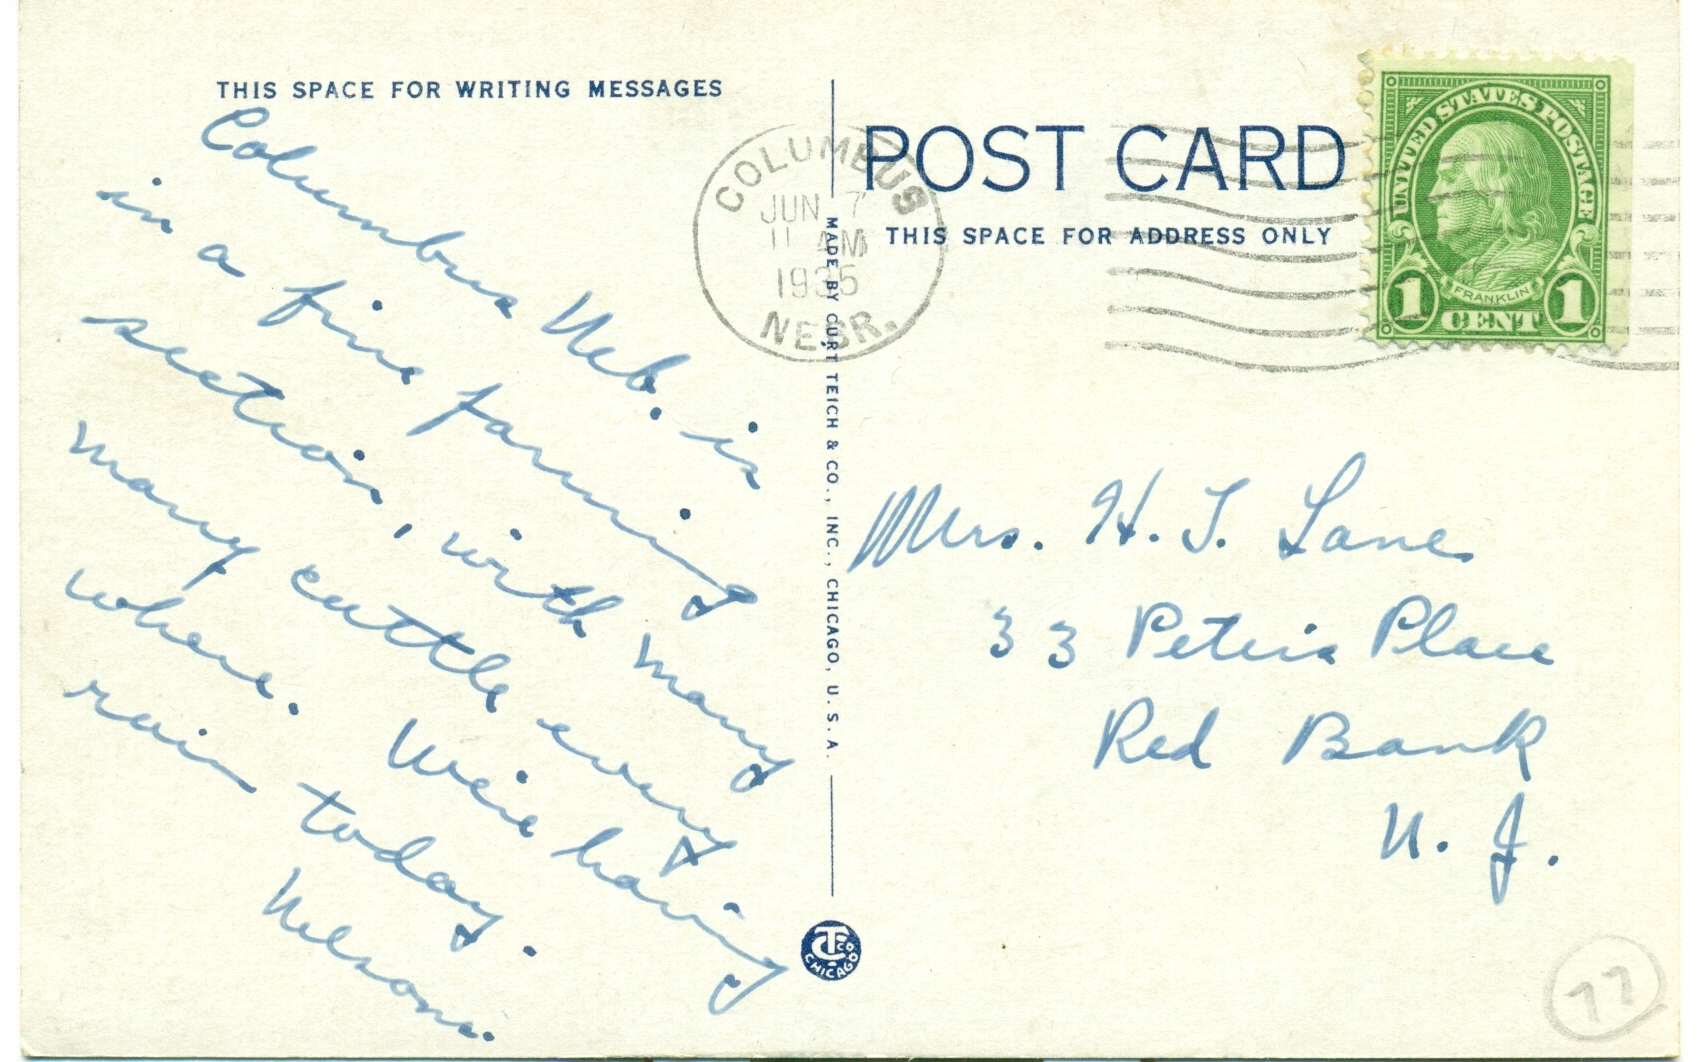 THIS SPACE FOR WRITING MESSAGES
Columbus Neb. is
in a fine farming
section, with many
many cattle every
where. We're having
rain today.
Nelson.
COLUMBUS
JUN 7
11 AM
1935
NEBR.
MADE BY CURT TEICH & CO., INC., CHICAGO, U.S.A.
CT CO
CHICAGO
POST CARD
THIS SPACE FOR ADDRESS ONLY
UNITED STATES POSTAGE
FRANKLIN
1 CENT 1
Mrs. H. T. Lane
33 Peters Place
Red Bank
N. J.
77